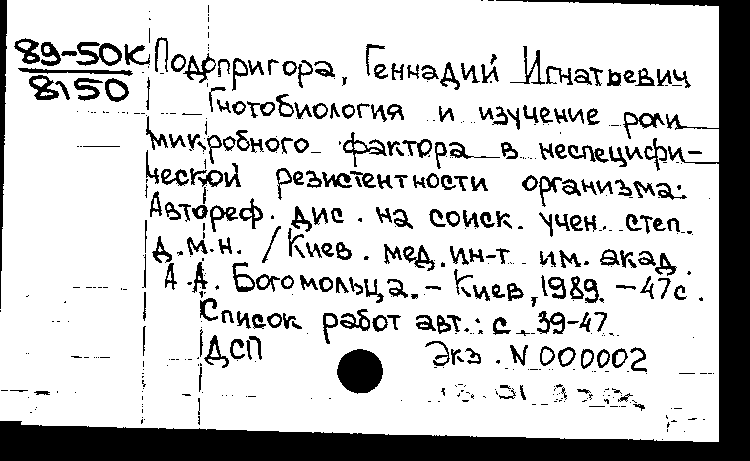 89-50К
8150
Подопригора, Геннадий Игнатьевич
Гнотобиология и изучение роли
микробного фактора в неспецифи-
ческой резистентности организма:
Автореф. дис. на соиск. учен. степ.
д.м.н. / Киев. мед. ин-т им. акад.
А.А. Богомольца. - Киев, 1989. - 47с.
Список работ авт.: с. 39-47
ДСП Экз. N 000002